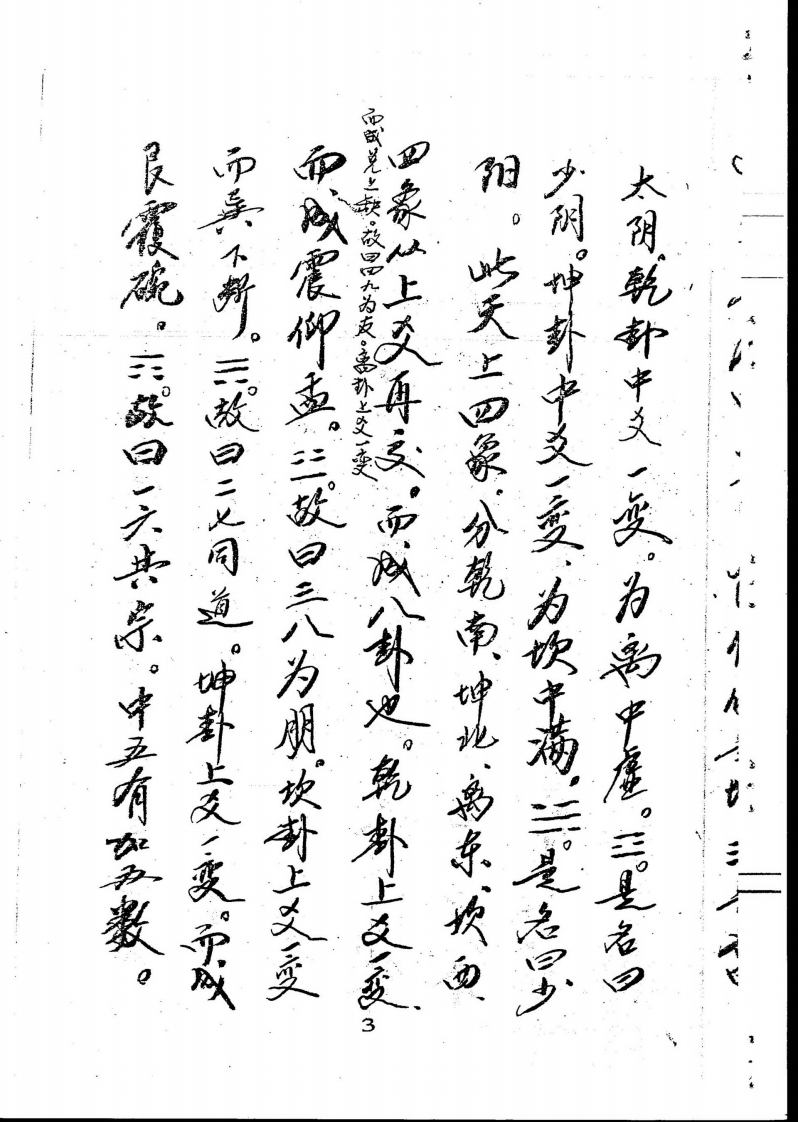 太阴。乾卦中爻一变。为离中虚。☲。是名曰
少阴。坤卦中爻一变、为坎中满。☵。是名曰少
阳。此天上四象、分乾南、坤北、离东、坎西、
四象从上爻再变。而成八卦也。乾卦上爻一变、
而成兑上缺。故曰四九为友。离卦上爻一变
而成震仰盂。☳。故曰三八为朋。坎卦上爻一变
而巽下断。☴。故曰二七同道。坤卦上爻一变。而成
艮覆碗。☶。故曰一六共宗。中五有加五数。
3